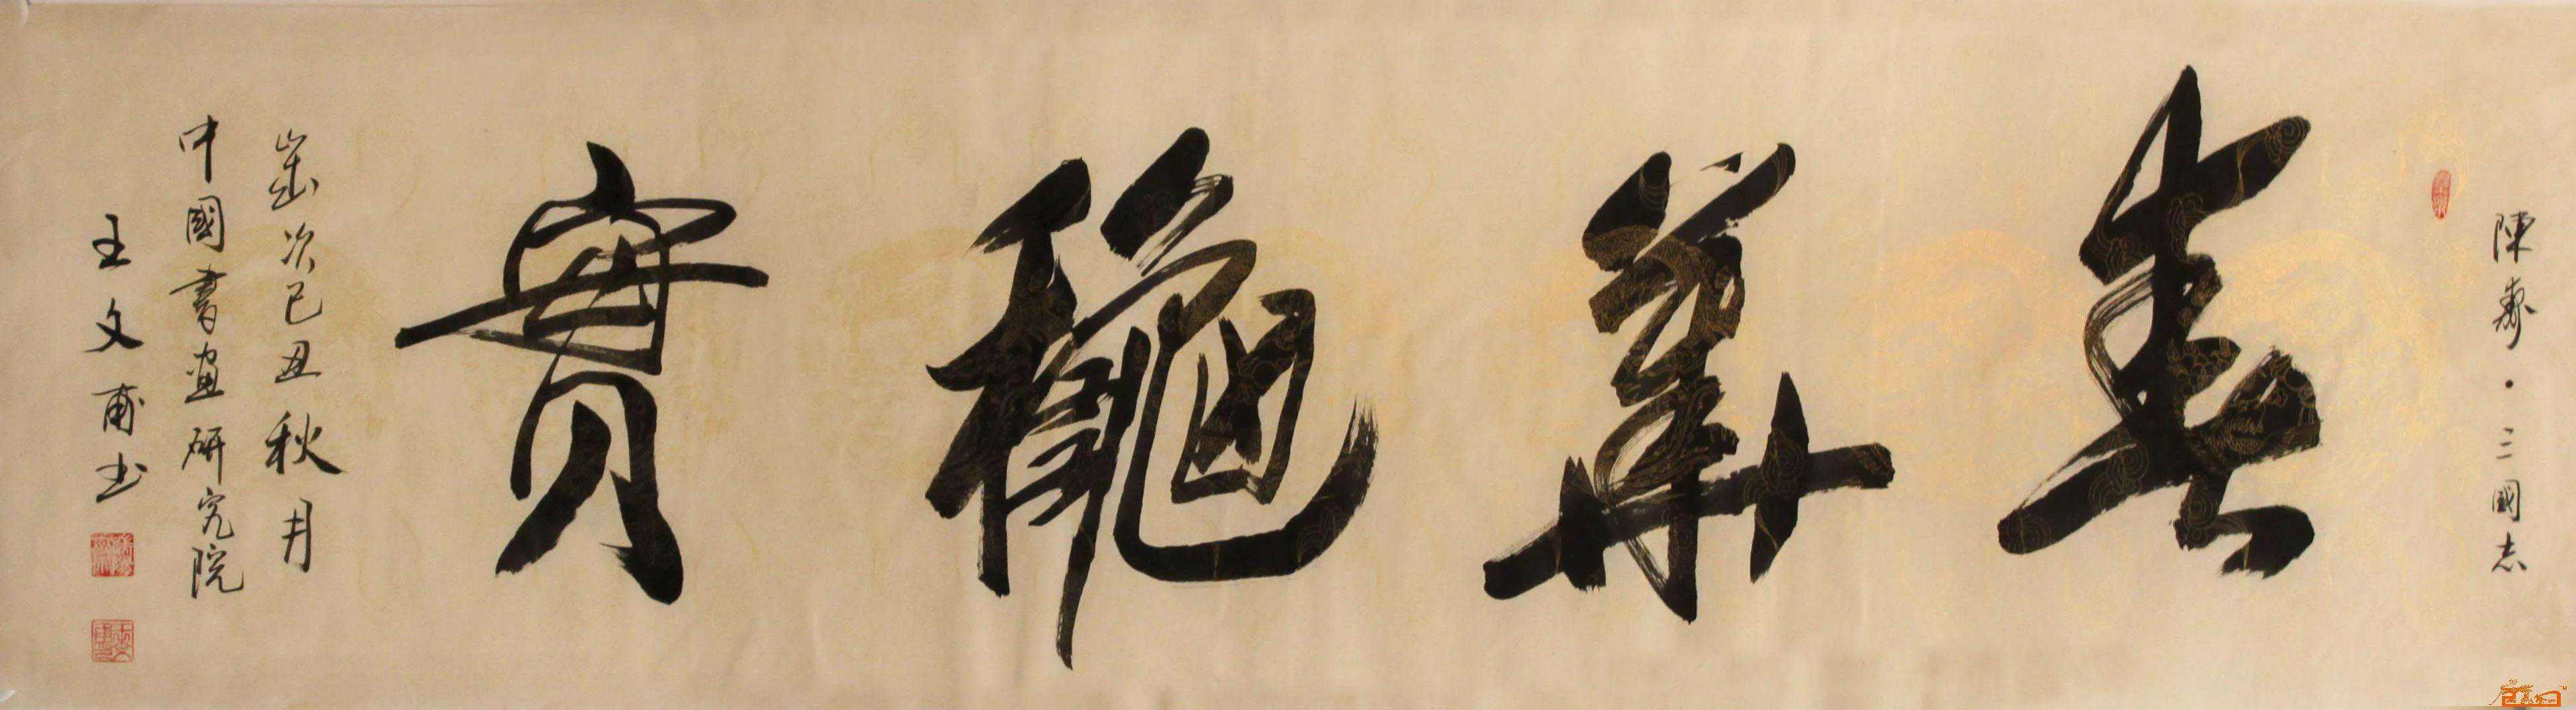 陳壽·三國志
春華龝實
歲次己丑秋月
中國書畫研究院
王文甫书